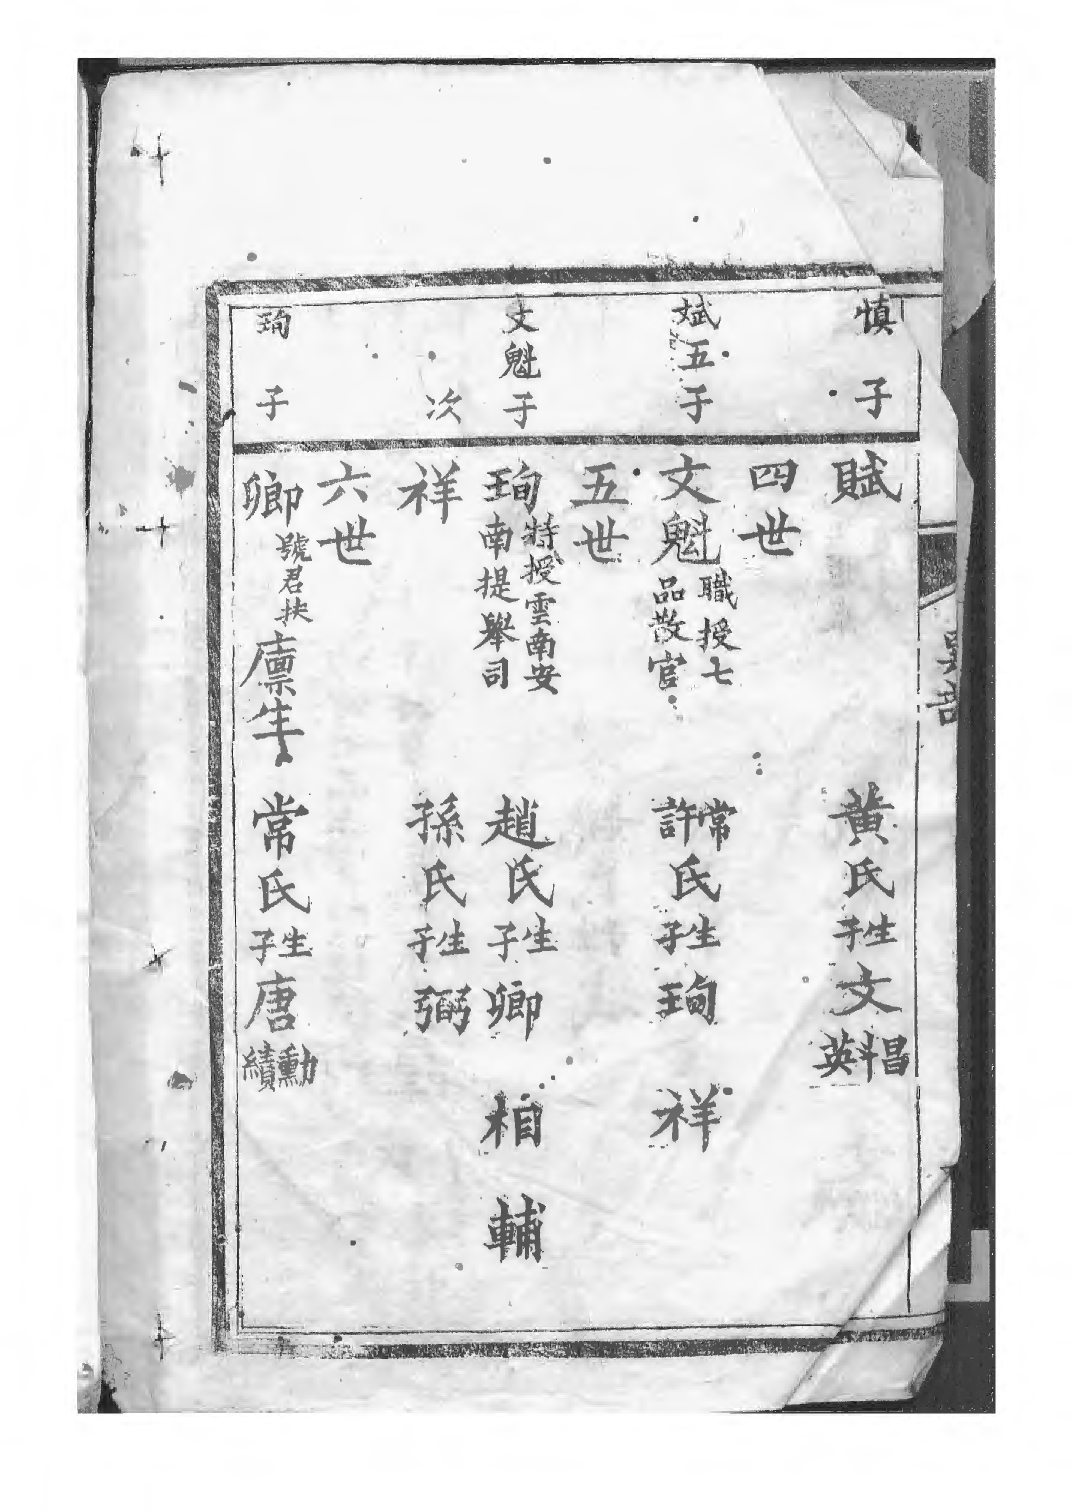 慎子
賦 黃氏 生子 文 昌 斗 英
四世
斌五子
文魁 職授七品散官 常 許氏 生子 珣 祥
五世
文魁子
珣 特授雲南安南提舉司 趙氏 生子 卿 相 輔
次
祥 孫氏 生子 弼
六世
珣子
卿 號君扶 廪生 常氏 生子 唐 勳 績